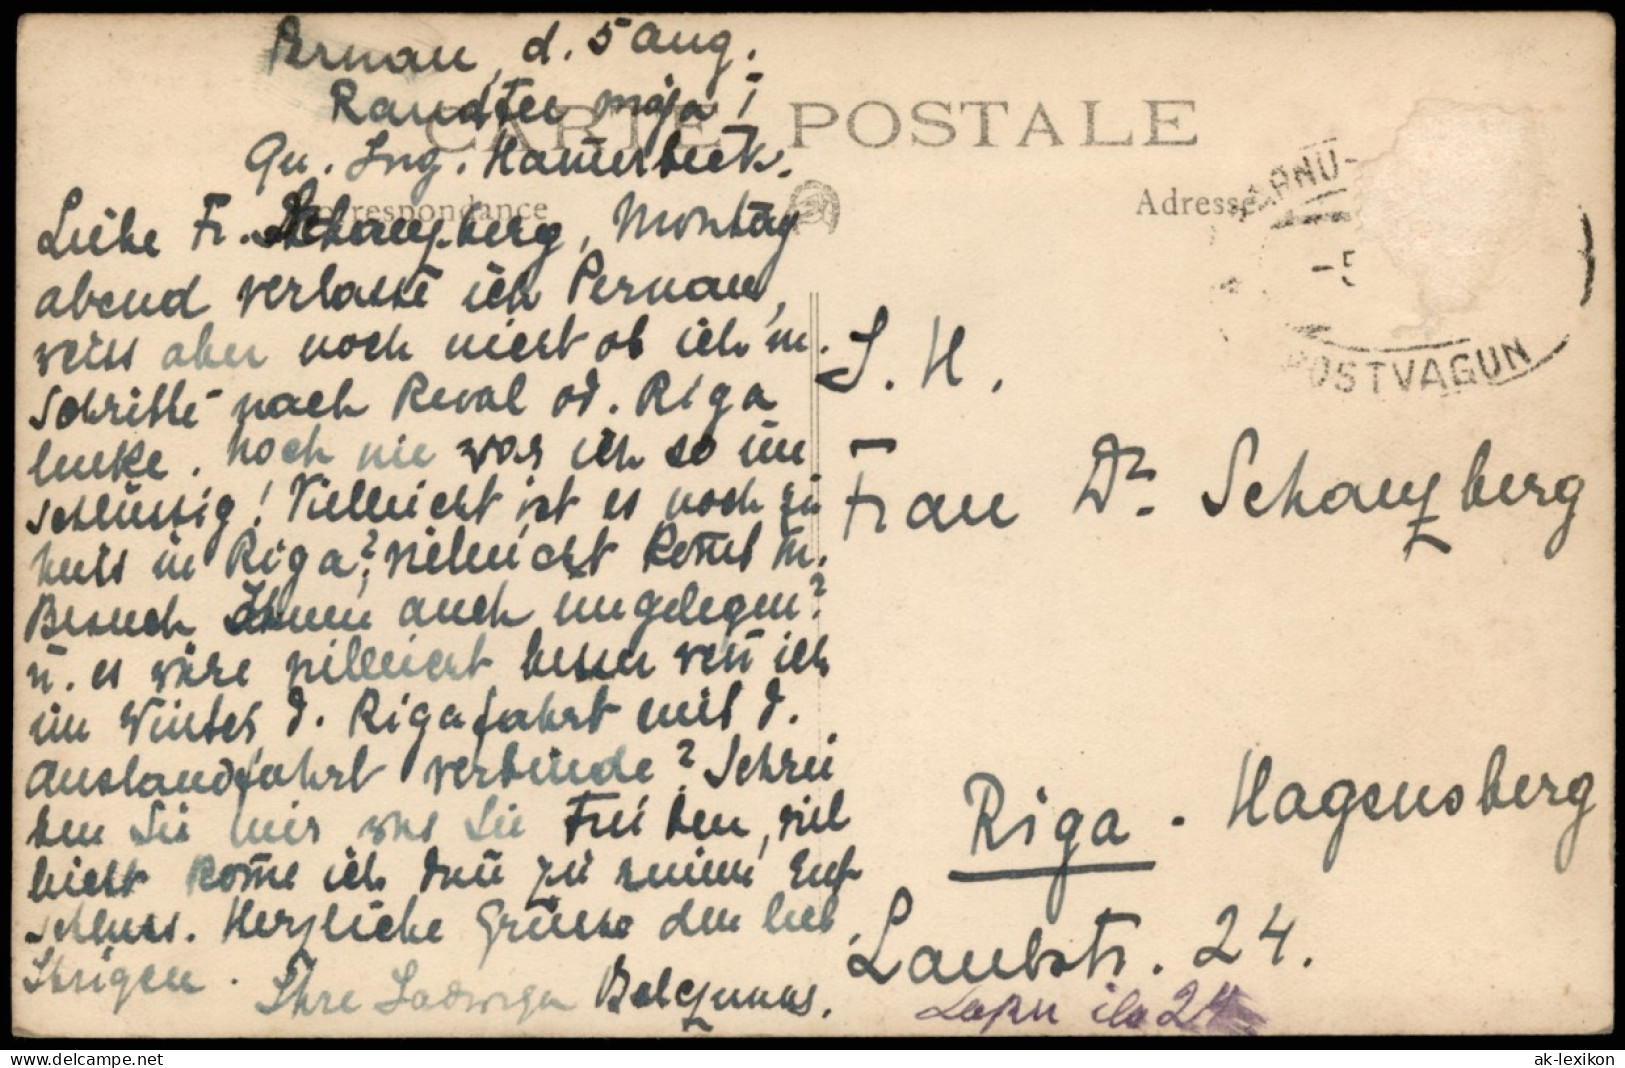 Pernau, d. 5 Aug.
Randtee maja 1
Qu. Ing. Hamerbeck.
CARTE POSTALE
Correspondance
Adresse
Liebe Fr. Schanzberg, Montag
abend verlasse ich Pernau,
weiss aber noch nicht ob ich m.
Schritte nach Reval od. Riga
lenke. Noch nie war ich so un
schlüssig! Vielleicht ist es noch zu
heiss in Riga?, vielleicht kom̄t m.
Besuch Ihnen auch ungelegen?
u. es wäre vielleicht besser wen̄ ich
im Winter d. Rigafahrt mit d.
Auslandfahrt verbinde? Schrei
ben Sie mir was Sie Frei ben, viel
leicht kom̄e ich dan̄ zu einem Ent
schluss. Herzliche Grüsse den lieb.
Ihrigen. Ihre Ladwiga
PÄRNU-
-5
POSTVAGUN
S. H.
Frau Dr. Schanzberg
Riga - Hagensberg
Laubstr. 24.
Lapu iela 24
ak-lexikon